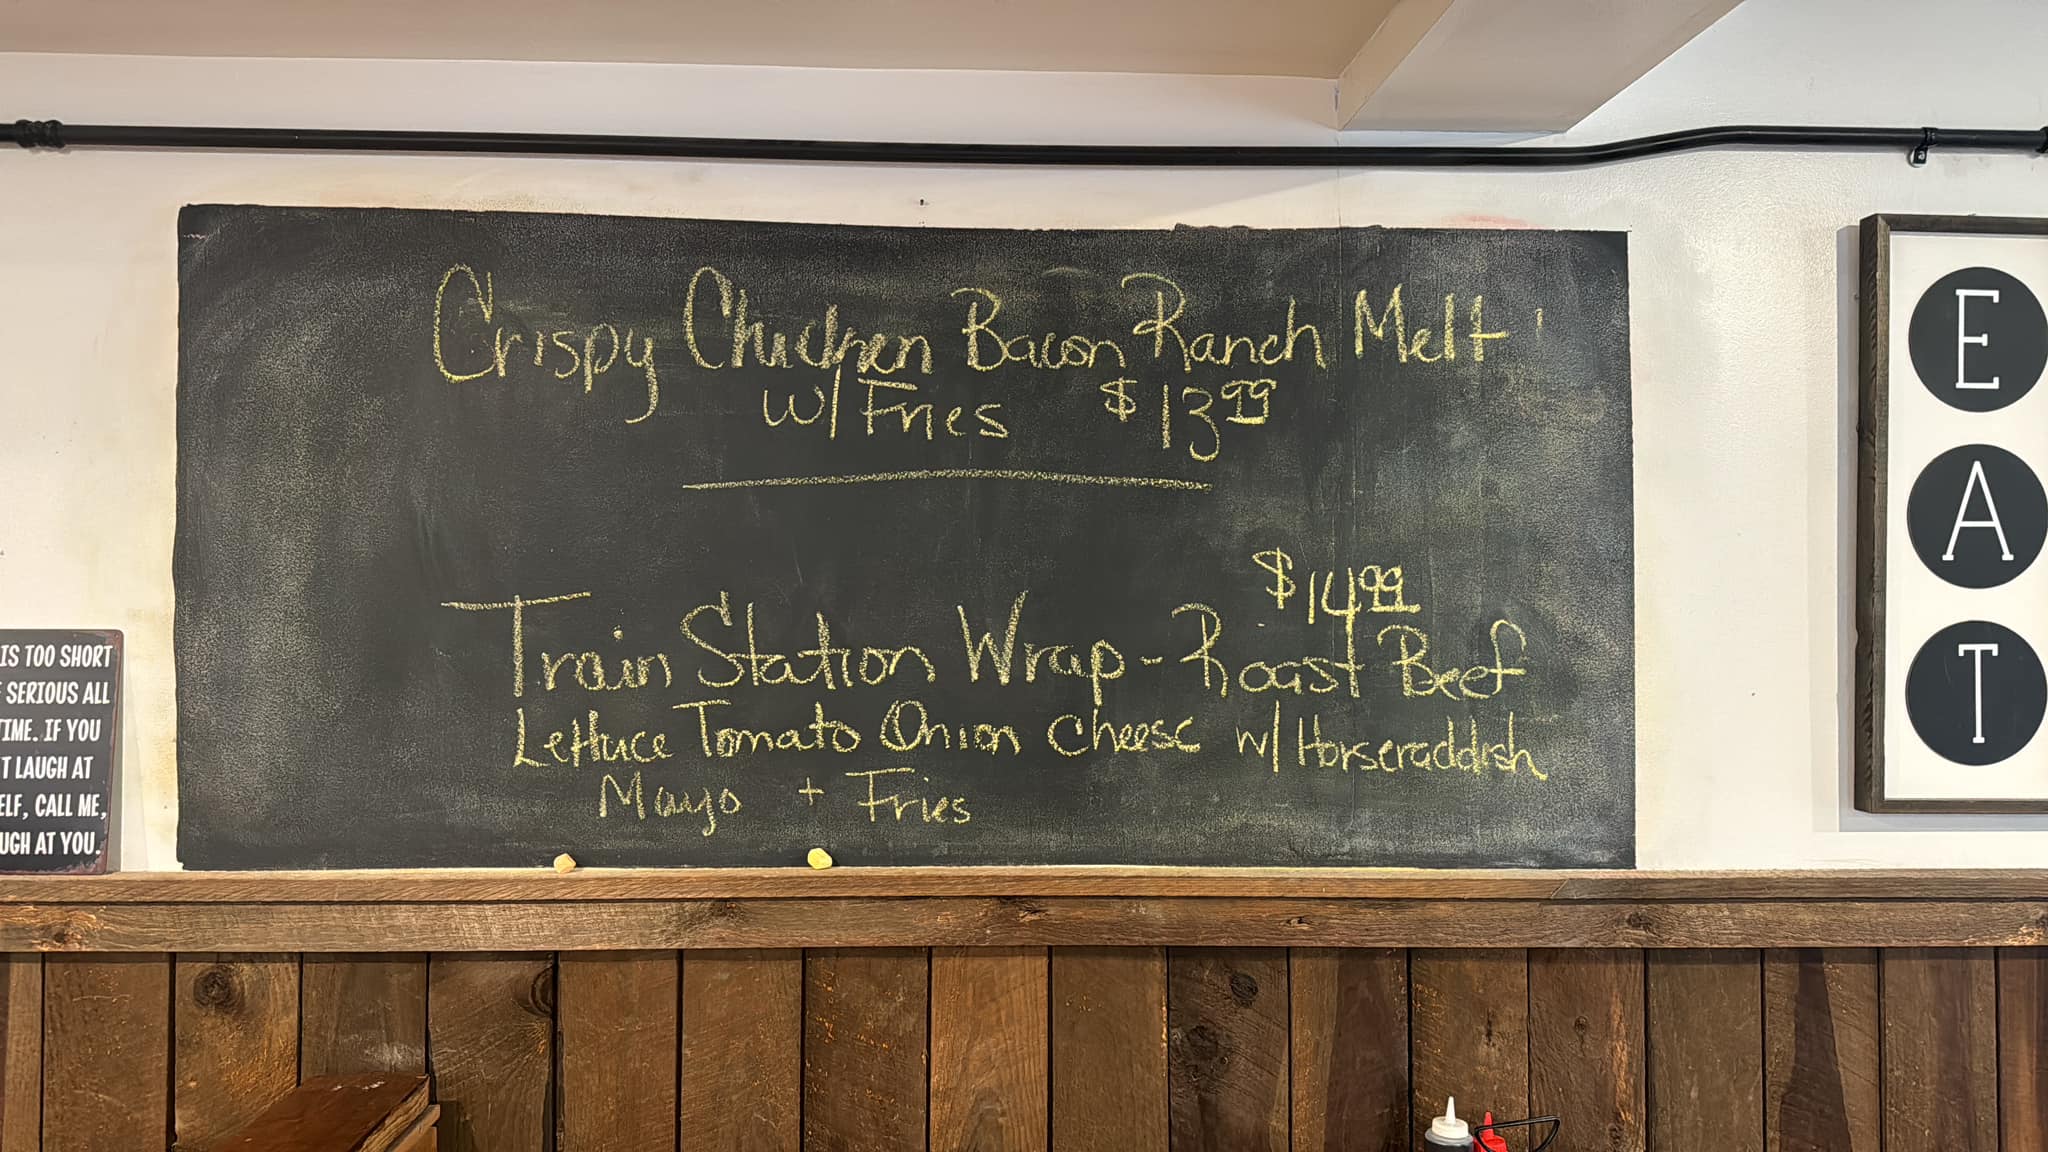 Crispy Chicken Bacon Ranch Melt
w/ Fries $13.99
$14.99
Train Station Wrap - Roast Beef
Lettuce Tomato Onion Cheese w/ Horseraddish
Mayo + Fries
IS TOO SHORT
SERIOUS ALL
TIME. IF YOU
T LAUGH AT
ELF, CALL ME,
UGH AT YOU.
E
A
T